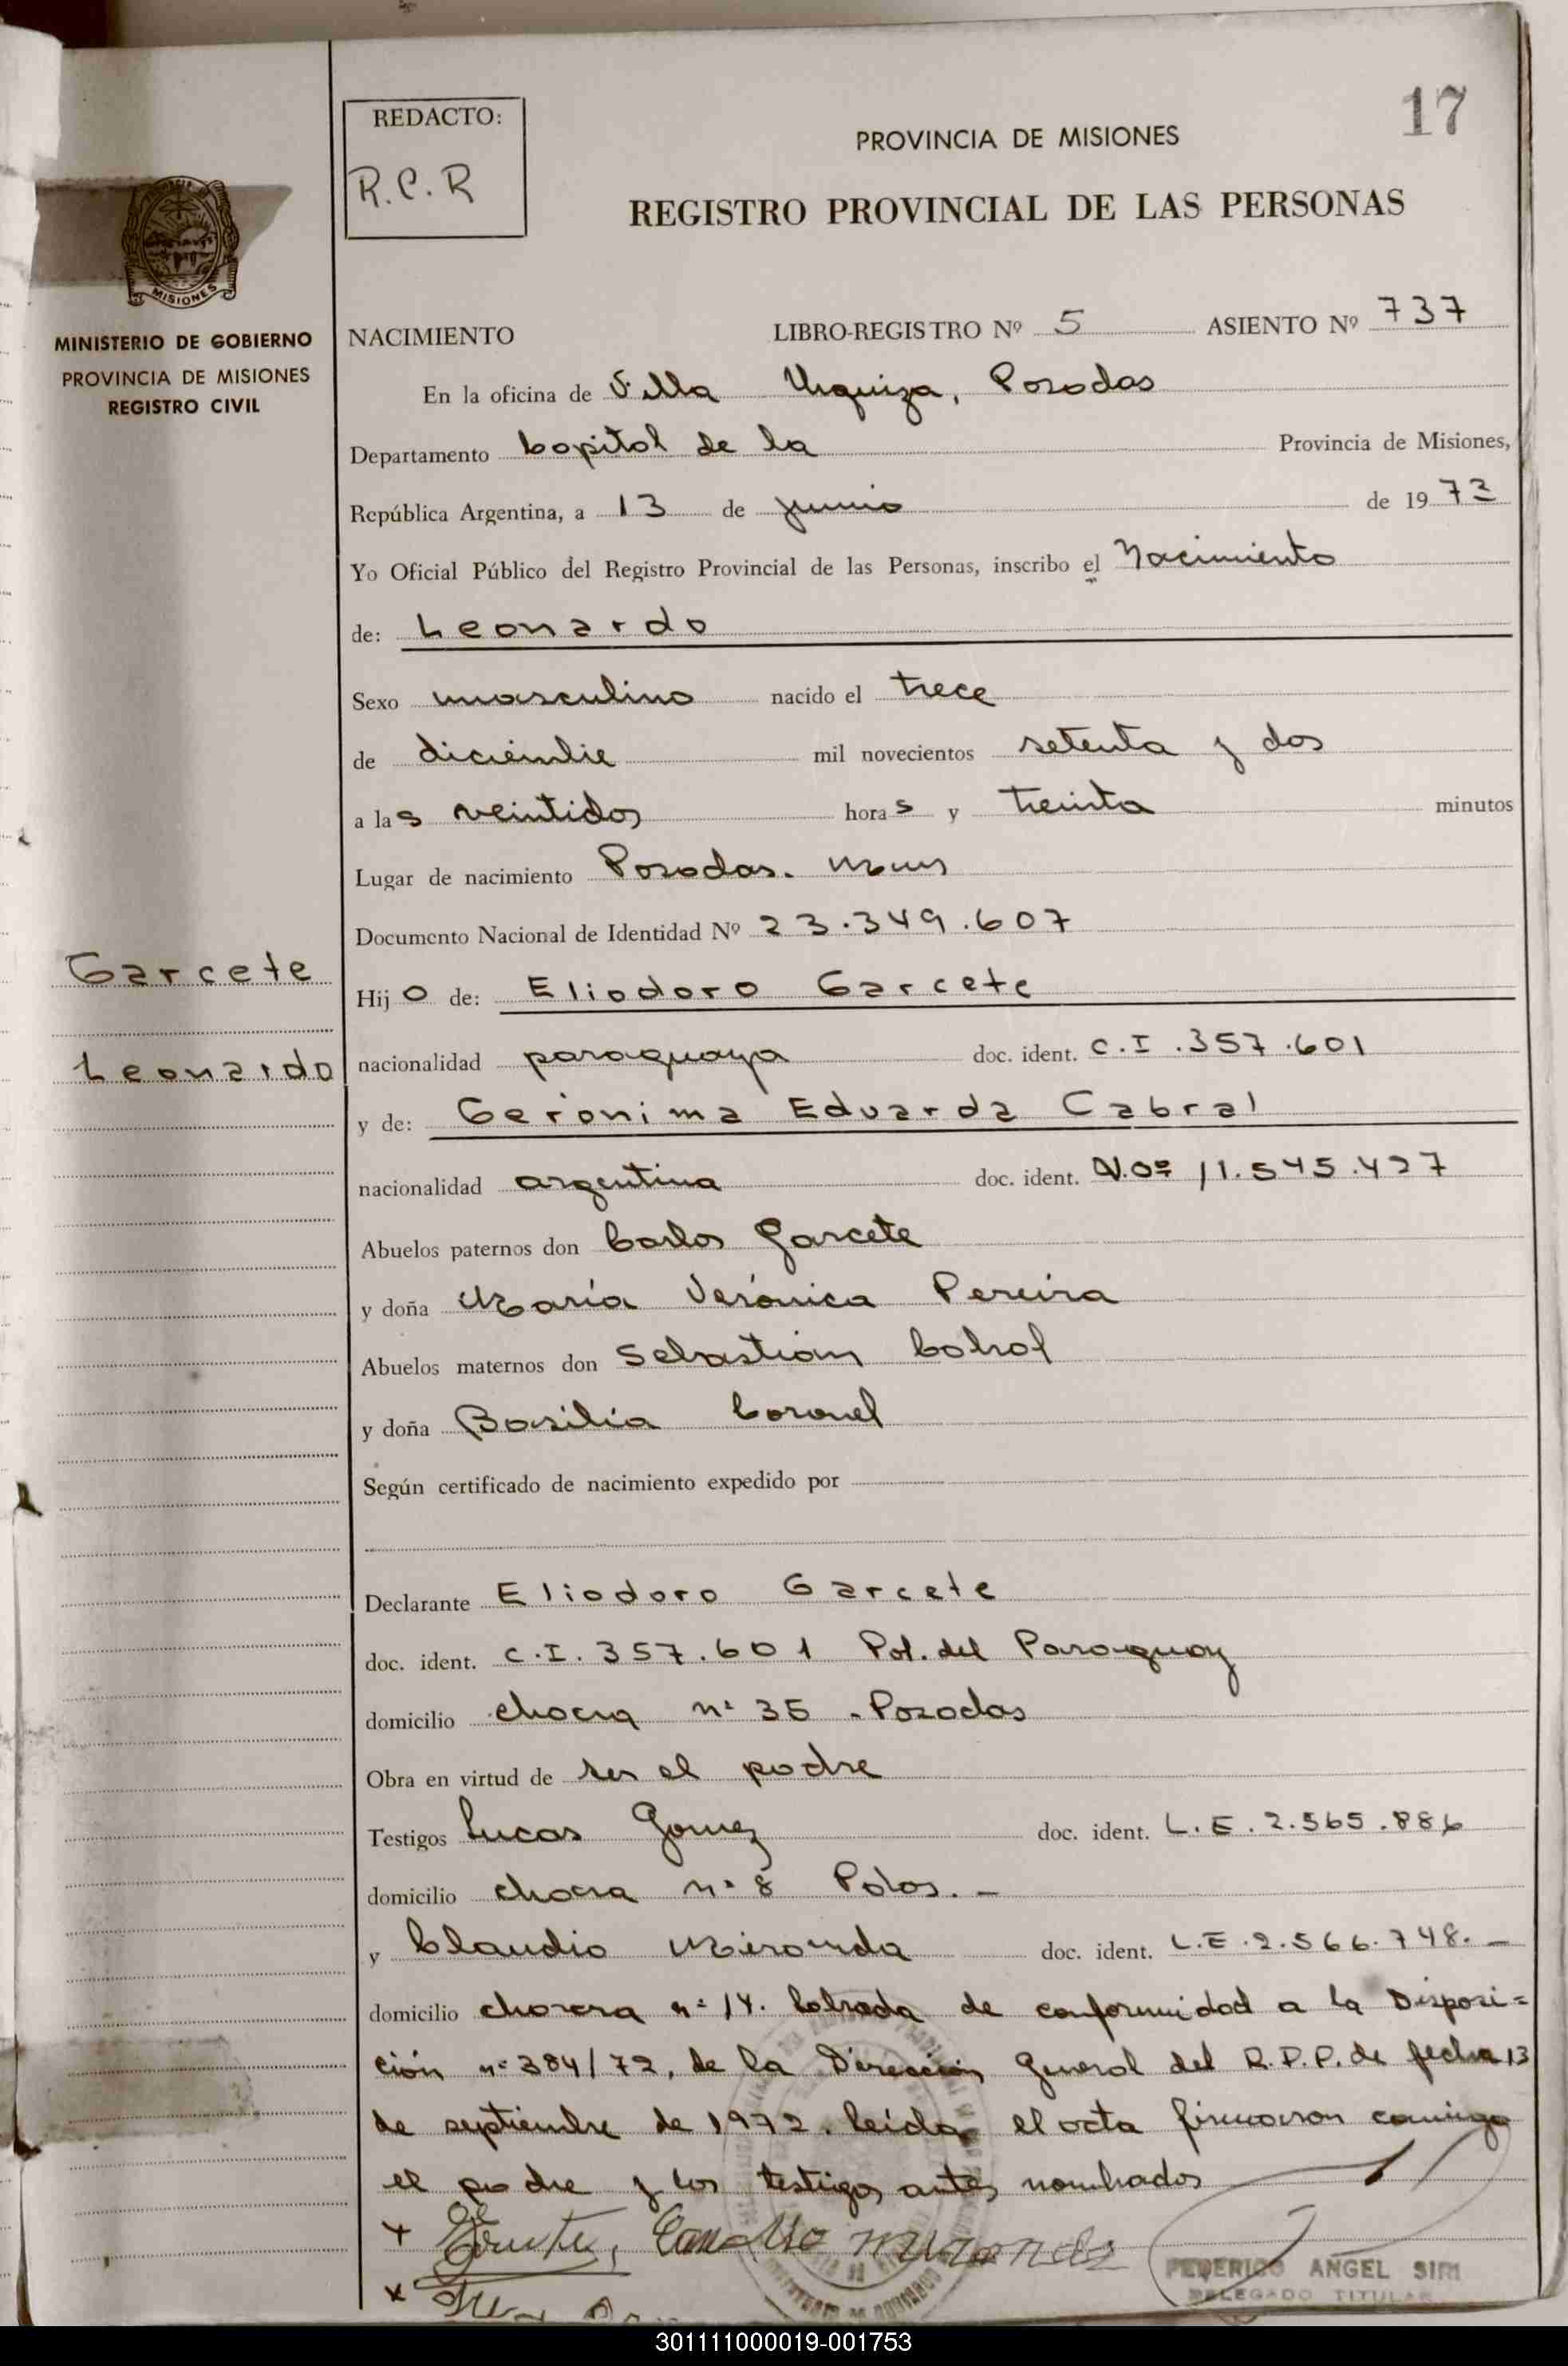 17
REDACTO:
R.C.R
PROVINCIA DE MISIONES
REGISTRO PROVINCIAL DE LAS PERSONAS
MISIONES
MINISTERIO DE GOBIERNO
PROVINCIA DE MISIONES
REGISTRO CIVIL
NACIMIENTO LIBRO-REGISTRO Nº 5 ASIENTO Nº 737
En la oficina de Villa Urquiza, Posadas
Departamento Capital de la Provincia de Misiones,
República Argentina, a 13 de junio de 1973
Yo Oficial Público del Registro Provincial de las Personas, inscribo el Nacimiento
de: Leonardo
Sexo masculino nacido el trece
de diciembre mil novecientos setenta y dos
a las veintidos horas y treinta minutos
Lugar de nacimiento Posadas. Mnes
Documento Nacional de Identidad Nº 23.349.607
Garcete
Hijo de: Eliodoro Garcete
Leonardo
nacionalidad paraguaya doc. ident. C.I.357.601
y de: Gerónima Eduarda Cabral
nacionalidad argentina doc. ident. 11.545.427
Abuelos paternos don Carlos Garcete
y doña María Verónica Pereira
Abuelos maternos don Sebastián Cabral
y doña Basilia Coronel
Según certificado de nacimiento expedido por
Declarante Eliodoro Garcete
doc. ident. C.I. 357.601 Pol. del Paraguay
domicilio chacra nº 35 - Posadas
Obra en virtud de ser el padre
Testigos Lucas Gomez doc. ident. L.E. 2.565.886
domicilio chacra nº 8 Pdas. -
y Claudio Miranda doc. ident. L.E.2.566.748. -
domicilio chacra nº 14. Labrada de conformidad a la Disposi=
ción nº 384/72, de la Dirección General del R.P.P. de fecha 13
de septiembre de 1972. Leída el acta firmaron conmigo
el padre y los testigos antes nombrados
FEDERICO ANGEL SIRI
DELEGADO TITULAR
301111000019-001753